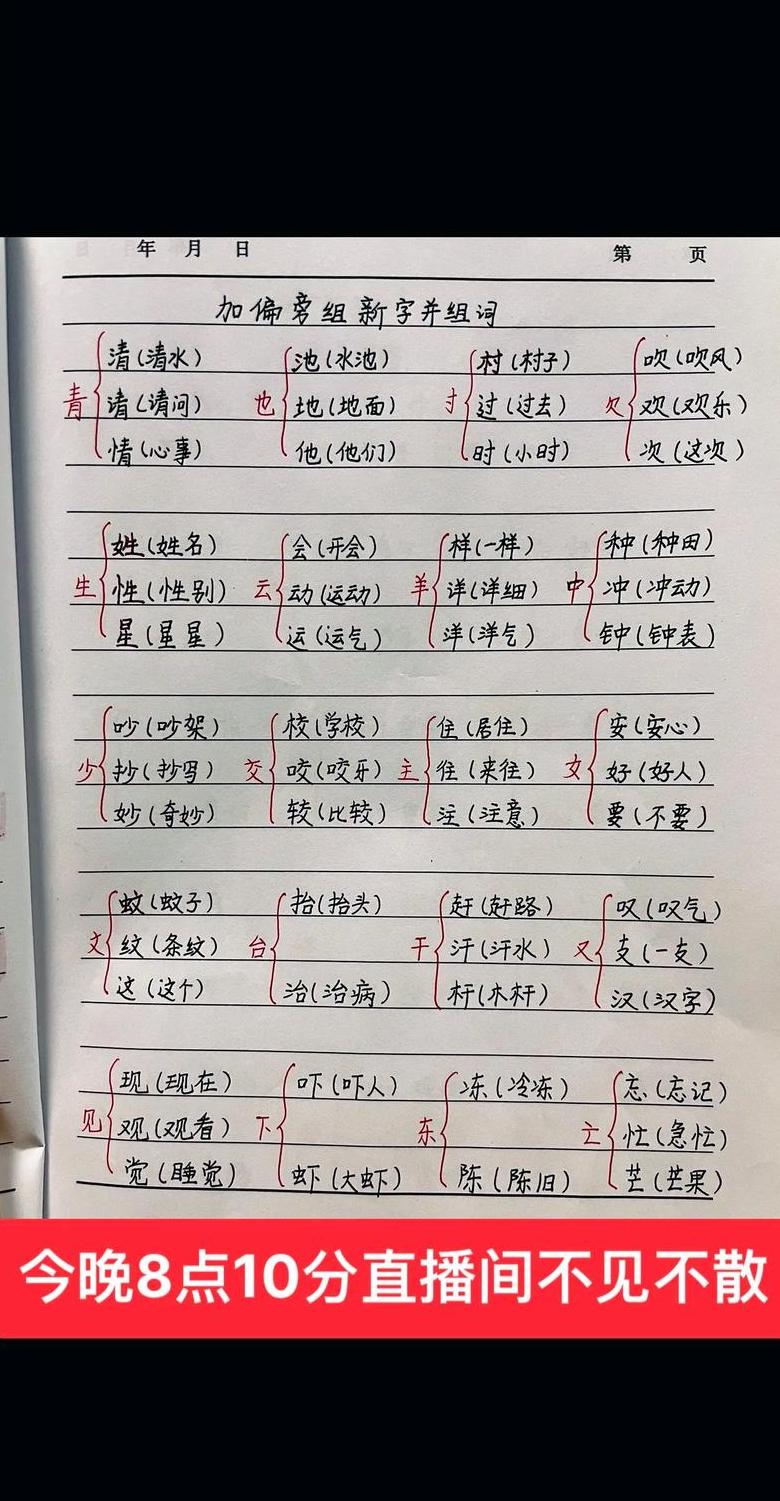 年 月 日 第 页
加偏旁组新字并组词
清(清水) 池(水池) 村(村子) 吹(吹风)
青 请(请问) 也 地(地面) 寸 过(过去) 欠 欢(欢乐)
情(心事) 他(他们) 时(小时) 次(这次)
姓(姓名) 会(开会) 样(一样) 种(种田)
生 性(性别) 云 动(运动) 羊 洋(洋细) 中 冲(冲动)
星(星星) 运(运气) 洋(洋气) 钟(钟表)
吵(吵架) 校(学校) 住(居住) 安(安心)
少 抄(抄写) 交 咬(咬牙) 主 往(来往) 女 好(好人)
妙(奇妙) 较(比较) 注(注意) 要(不要)
蚊(蚊子) 抬(抬头) 赶(赶路) 叹(叹气)
文 纹(条纹) 台 干 汗(汗水) 又 支(一支)
这(这个) 治(治病) 杆(木杆) 汉(汉字)
现(现在) 吓(吓人) 冻(冷冻) 忘(忘记)
见 观(观看) 下 东 亡 忙(急忙)
觉(睡觉) 虾(大虾) 陈(陈旧) 芒(芒果)
今晚8点10分直播间不见不散